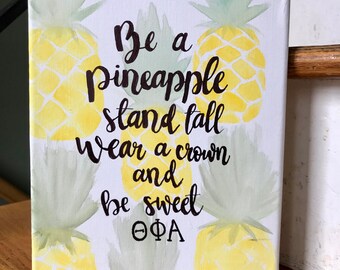 Be a
pineapple
stand tall
wear a crown
and
be sweet
ΘΦΑ